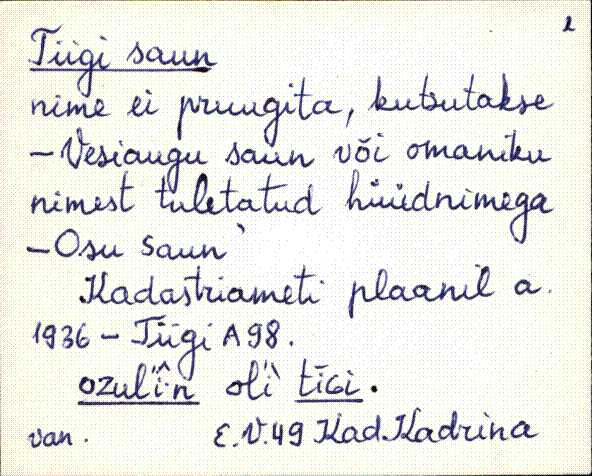 2
Tiigi saun
nime ei pruugita, kutsutakse
- Vesiaugu saun või omaniku
nimest tuletatud hüüdnimega
- Osu saun`
Kadastriameti plaanil a.
1936 - Tiigi A 98.
oli tīGi.
van. E.V.49 Kad. Kadrina